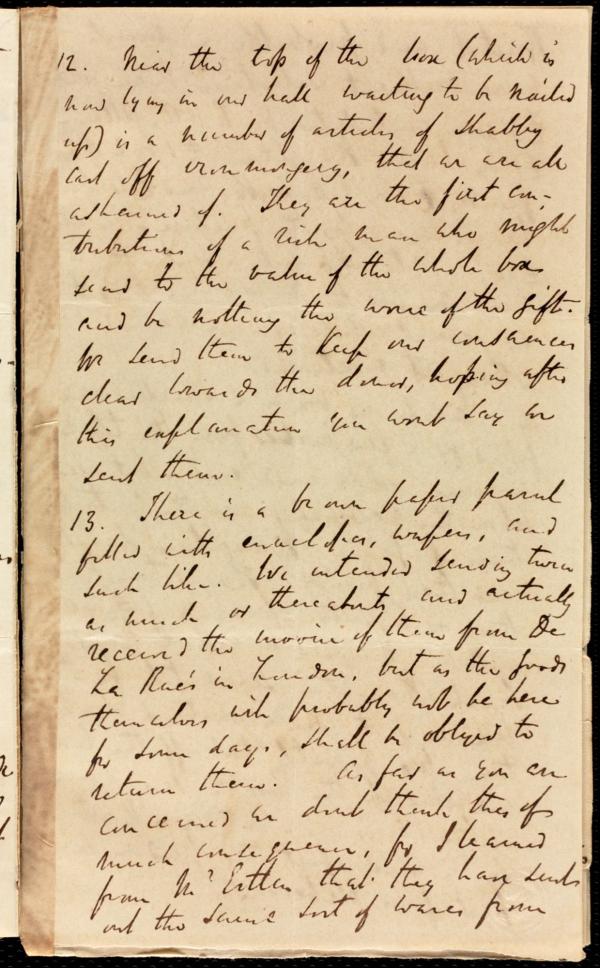 12. Near the top of the box (which is
now lying in our hall waiting to be nailed
up) is a number of articles of shabby
cast off ironmongery, that we are all
ashamed of. They are the first con-
tributions of a rich man who might
send to the value of the whole box
and be nothing the worse of the gift.
We send them to keep our consciences
clear towards the donor, hoping after
this explanation you wont say we
sent them.
13. There is a brown paper parcel
filled with envelopes, wafers, and
such like. We intended sending twice
as much or thereabouts and actually
received the invoice of them from De
La Rue's in London, but as the goods
themselves will probably not be here
for some days, shall be obliged to
return them. As far as you are
concerned we dont think this of
much consequence, for I learned
from Mr Estlin that they have sent
out the same sort of wares from